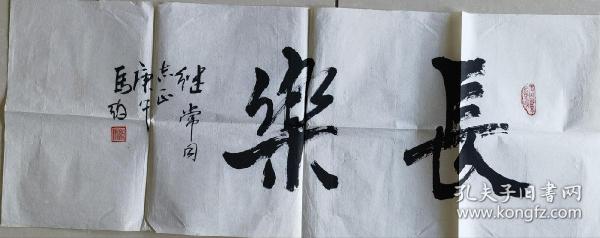 長樂
继常同
志正
庚午
馬
孔夫子旧书网
www.kongfz.com